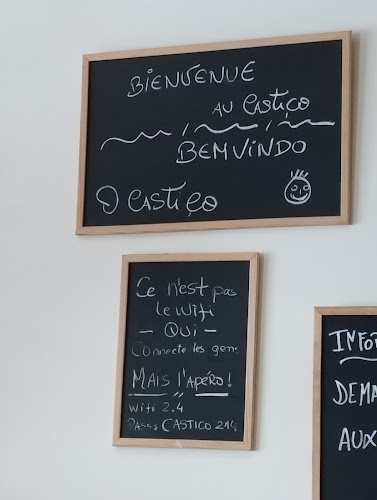 BIENVENUE
AU CASTIÇO
BEMVINDO
O CASTIÇO
Ce n'est pas
le wifi
- QUI -
Connecte les gens
MAIS l'APÉRO!
wifi 2.4
PASS: CASTICO 214
INFOR
DEMA
AUX